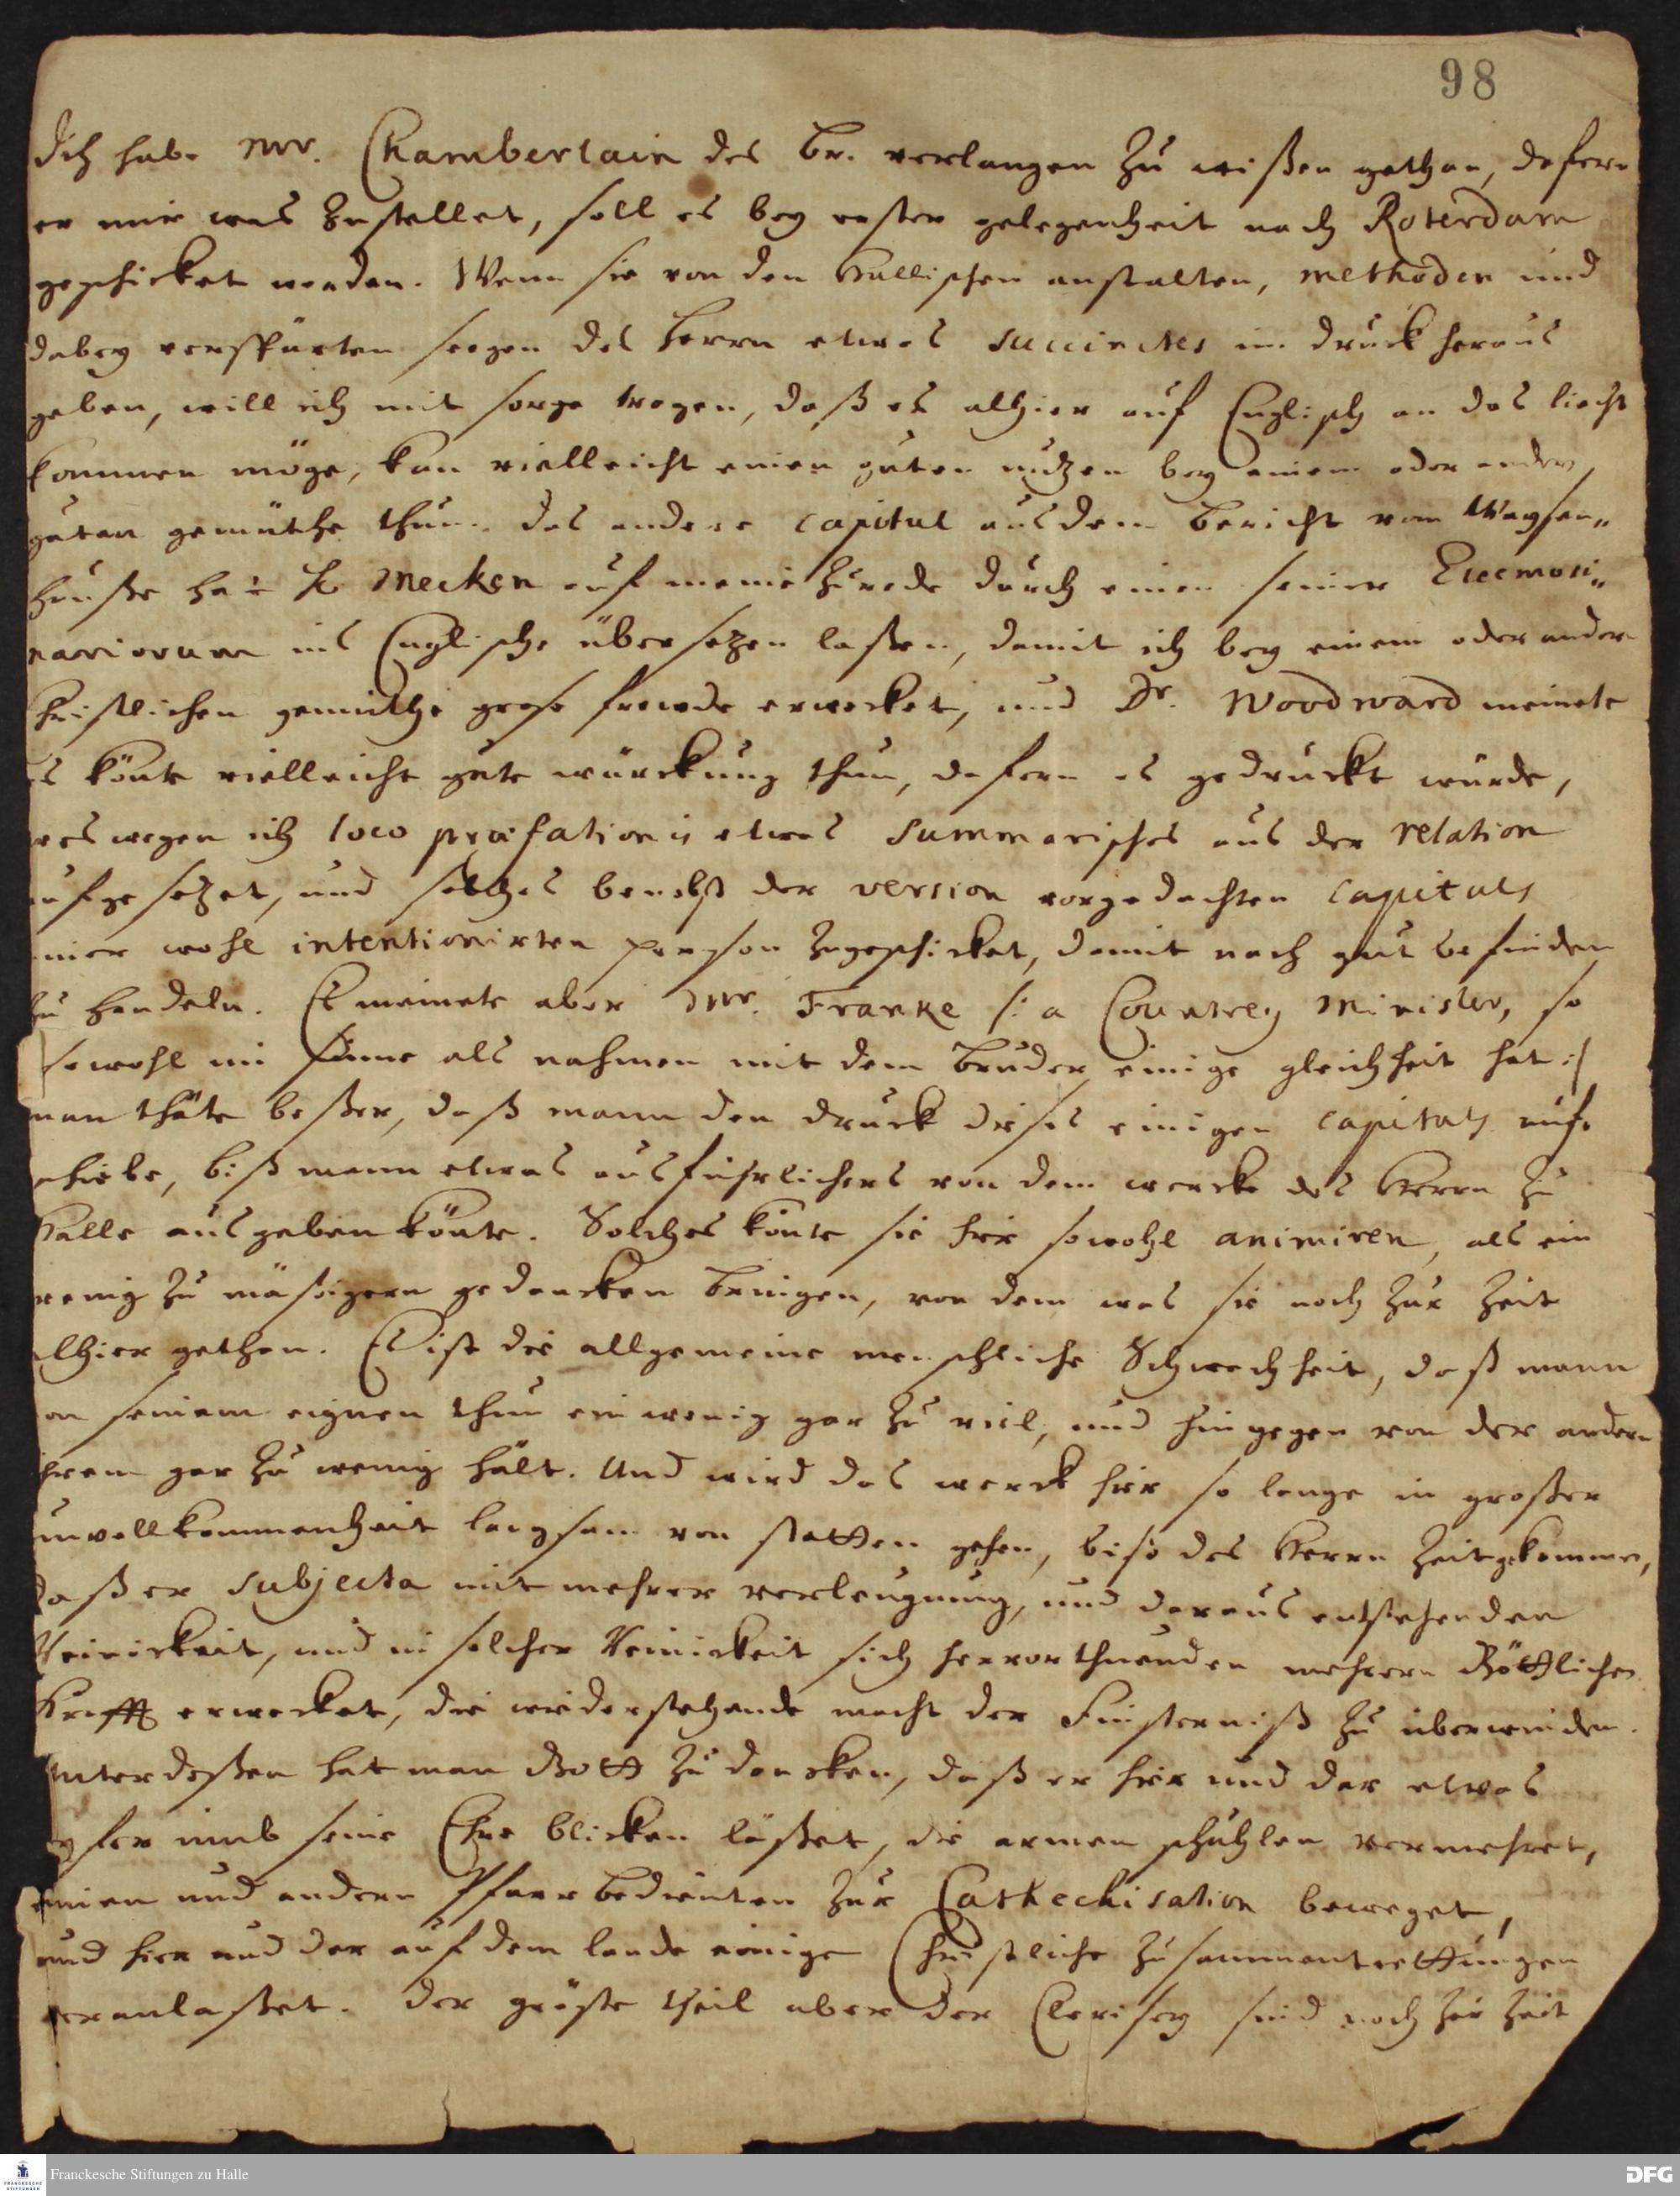 98
Ich habe Mr. Chamberlain des Br. verlangen zu wißen gethan, dafern
er mir was zustellet, soll es bey erster gelegenheit nach Roterdam
geschicket werden. Wenn sie von den Hallischen anstalten, methoden und
dabey verspürten seegen des Herrn etwas succinctes im druck heraus
geben, will ich mit sorge tragen, daß es alhier auf Englisch an das liecht
kommen möge, kan vielleicht einen guten nutzen bey einem oder andern
guten gemüthe thun. das andere Capitul aus dem Bericht vom Waysen„
hauße hat H. Mecken auf meine zurede durch einen seiner Eleemosi„
nariorum ins Englische übersetzen laßen, damit ich bey einem oder andern
Christlichen gemüthe grose freude erwecket, und Dr. Woodward meinete
es könte vielleicht gute würckung thun, dafern es gedruckt würde,
weswegen ich loco præfationis etwas summarisches aus der relation
aufgesetzet, und solches benebst der version vorgedachten Capituls
einer wohl intentionirten person zugeschicket, damit nach gut befinden
zu handeln. Es meinete aber Mr. Franke /: a Countrey Minister, so
sowohl im sinne als nahmen mit dem Bruder einige gleichheit hat :/
man thäte beßer, daß mann den druck dieses einigen Capituls auf„
schiebe, biß mann etwas ausführlichers von dem wercke des Herrn zu
Halle ausgeben könte. Solches könte sie hier sowohl animiren, als ein
wenig zu mäßigern gedancken bringen, von dem was sie noch zur Zeit
alhier gethan. Es ist die allgemeine menschliche Schwachheit, daß mann
von seinem eignen thun ein wenig gar zu viel, und hingegen von der andern
ihrem gar zu wenig hält. Und wird das werck hier so lange in großer
unvollkommenheit langsam von statten gehen, biß des Herrn Zeit gekommen,
daß er subjecta mit mehrer verleugnung, und daraus entstehenden
Reinickeit, und in solcher Reinickeit sich hervorthuenden mehrern Göttlichen
Krafft erwecket, die wiederstehende macht der Finsterniß zu überwinden.
Unterdeßen hat man Gott zu dancken, daß er hier und dar etwas
eyfer umb seine Ehre blicken läßet, die armen schuhlen vermehret,
einen und andern Pfarrbedienten zur Cathechisation beweget,
und hier und dar auf dem lande einige Christliche zusammentrettungen
veranlaßet. der gröste theil aber der Clerisey sind noch zur Zeit
Franckesche Stiftungen zu Halle
DFG